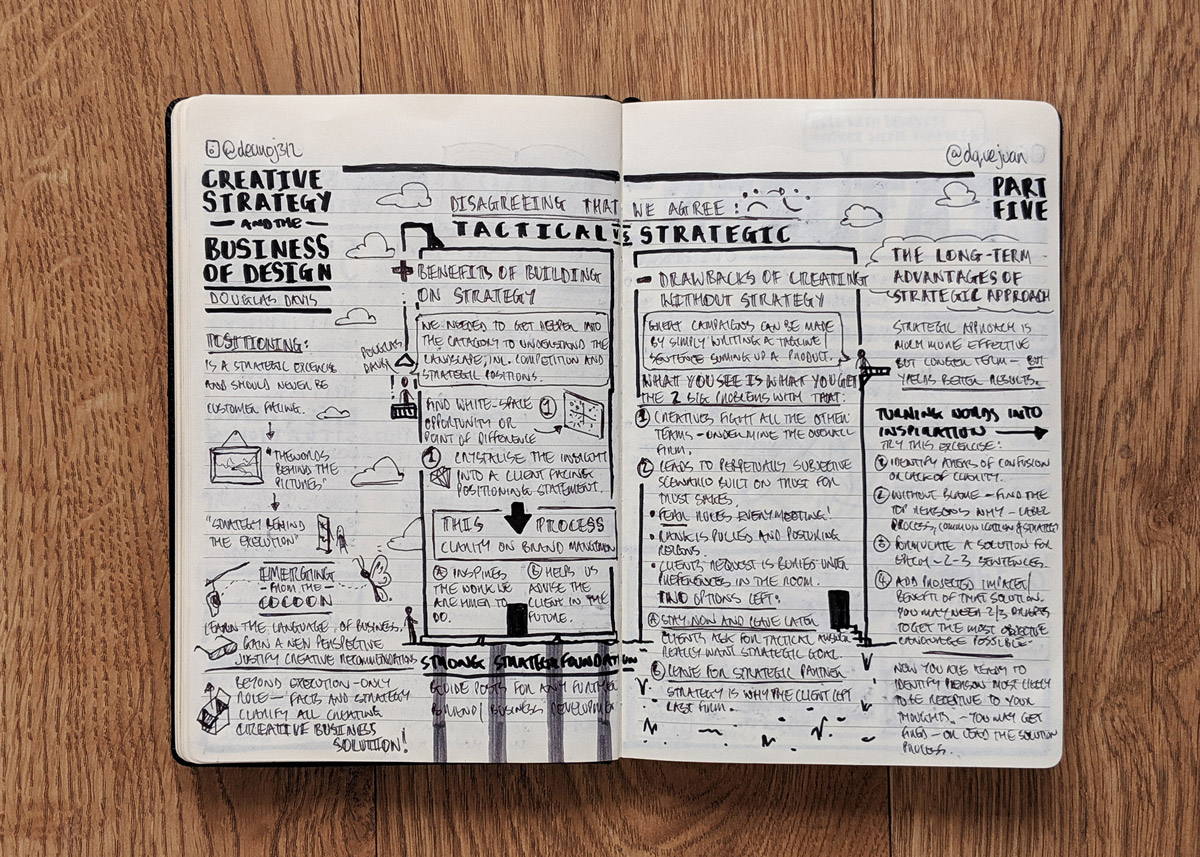 @deanoj312
CREATIVE
STRATEGY
— AND THE —
BUSINESS
OF DESIGN
DOUGLAS DAVIS
POSITIONING:
IS A STRATEGIC EXCERCISE
AND SHOULD NEVER BE
CUSTOMER FACING.
"THE WORDS
BEHIND THE
PICTURES"
"STRATEGY BEHIND
THE EXECUTION"
EMERGING
— FROM THE —
COCOON
LEARN THE LANGUAGE OF BUSINESS.
GAIN A NEW PERSPECTIVE
JUSTIFY CREATIVE RECOMMENDATIONS
BEYOND EXECUTION-ONLY
ROLE — FACTS AND STRATEGY
CLARIFY ALL CREATING
CREATIVE BUSINESS
SOLUTION!
DISAGREEING THAT WE AGREE:
TACTICAL VS STRATEGIC
+ BENEFITS OF BUILDING
ON STRATEGY
WE NEEDED TO GET DEEPER INTO
THE CATAGORY TO UNDERSTAND THE
LANDSCAPE, INC. COMPETITION AND
STRATEGIC POSITIONS.
DOUGLAS
DAVIS
FIND WHITE-SPACE
OPPORTUNITY OR
POINT OF DIFFERENCE
1
1 CRYSTALISE THE INSIGHT
INTO A CLIENT FACING
POSITIONING STATEMENT.
THIS PROCESS
CLARITY ON BRAND
A INSPIRES
THE WORK WE
ARE HIRED TO
DO.
B HELPS US
ADVISE THE
CLIENT IN THE
FUTURE.
STRONG STRATEGIC FOUNDATION
GUIDE POSTS FOR ANY FURTHER
BRAND/ BUSINESS DEVELOPMENT
@dquejuan
PART
FIVE
- DRAWBACKS OF CREATING
WITHOUT STRATEGY
GREAT CAMPAIGNS CAN BE MADE
BY SIMPLY WRITING A TAGLINE/
SENTENCE SUMING UP A PRODUCT.
WHAT YOU SEE IS WHAT YOU GET
THE 2 BIG PROBLEMS WITH THAT:
1 CREATIVES FIGHT ALL THE OTHER
TEAMS - UNDERMINE THE OVERALL
FIRM.
2 LEADS TO PERPETUALLY SUBJECTIVE
SCENARIO BUILT ON TRUST FOR
TRUST SAKES.
• FEAR RULES EVERY MEETING!
• RANK IS PULLED AND POSTURING
REIGNS.
• CLIENTS REQUEST IS BURIED UNDER
PREFERENCES IN THE ROOM.
TWO OPTIONS LEFT:
A STAY NOW AND LEAVE LATER
CLIENTS ASK FOR TACTICAL ANSWER
REALLY WANT STRATEGIC GOAL.
B LEAVE FOR STRATEGIC PARTNER
STRATEGY IS WHY THE CLIENT LEFT
LAST FIRM.
THE LONG-TERM
ADVANTAGES OF
STRATEGIC APPROACH
STRATEGIC APPROACH IS
MUCH MORE EFFECTIVE
BUT LONGER TERM — BUT
YIELDS BETTER RESULTS.
TURNING WORDS INTO
INSPIRATION →
TRY THIS EXCERCISE:
1 IDENTIFY AREAS OF CONFUSION
OR LACK OF CLARITY.
2 WITHOUT BLAME — FIND THE
TOP REASONS WHY — LABEL
PROCESS, COMMUNICATION & STRATEGY
3 FORMULATE A SOLUTION FOR
EACH — 2-3 SENTENCES.
4 ADD PROJECTED IMPACT/
BENEFIT OF THAT SOLUTION.
YOU MAY NEED 2/3 DRAFTS
TO GET THE MOST OBJECTIVE
LANGUAGE POSSIBLE.
NOW YOU ARE READY TO
IDENTIFY PERSON MOST LIKELY
TO BE RECEPTIVE TO YOUR
THOUGHTS. — YOU MAY GET
FIRED — OR LEAD THE SOLUTION
PROCESS.